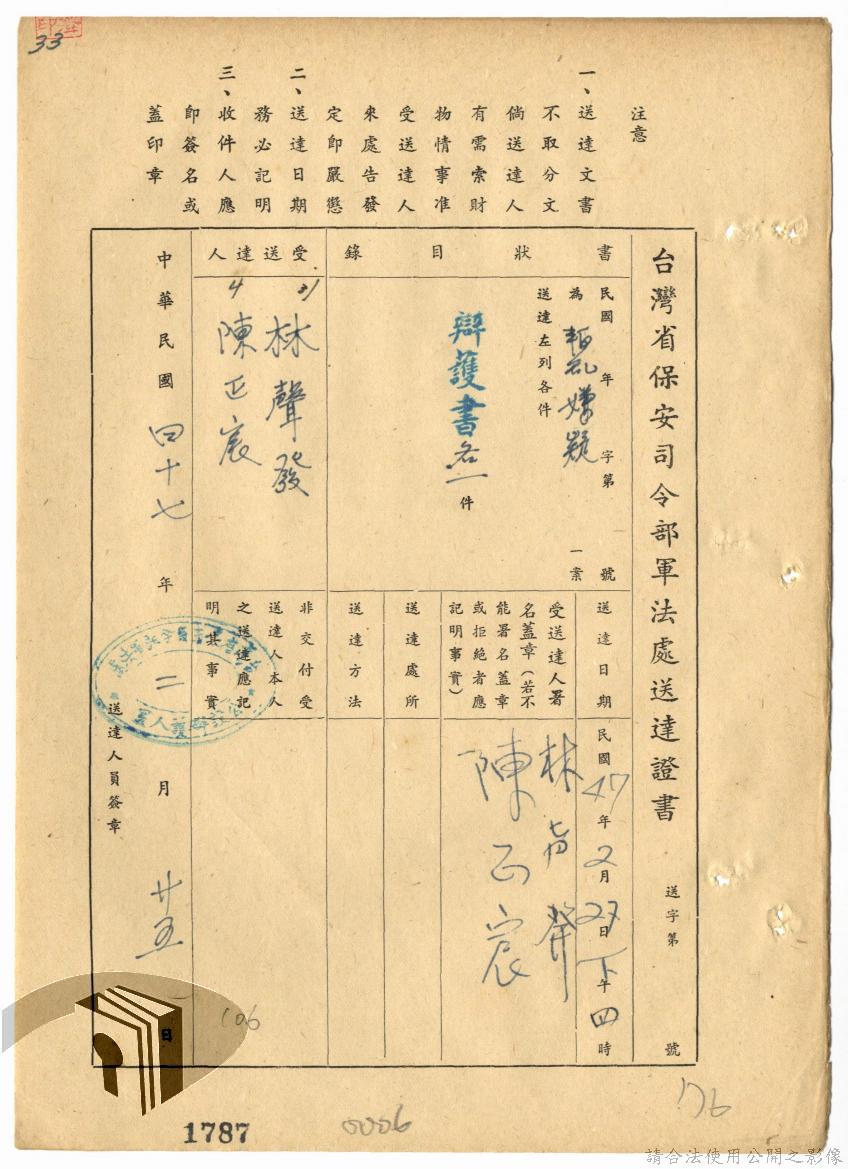 33
注意
一、送達文書
不取分文
倘送達人
有需索財
物情事准
受送達人
來處告發
定即嚴懲
二、送達日期
務必記明
三、收件人應
即簽名或
蓋印章
台灣省保安司令部軍法處送達證書
送字第 號
書狀目錄
民國 年 字第 號
為 叛亂嫌疑 一案
送達左列各件
辯護書各一件
受送達人
21 林聲發
4 陳正宸
送達日期
民國47年2月27日下午四時
受送達人署
名蓋章(若不
能署名蓋章
或拒絕者應
記明事實)
林聲發
陳正宸
送達處所
送達方法
非交付受
送達人本人
之送達應記
明其事實
中華民國四十七年二月廿五日
送達人員簽章
106
1787
0006
176
請合法使用公開之影像